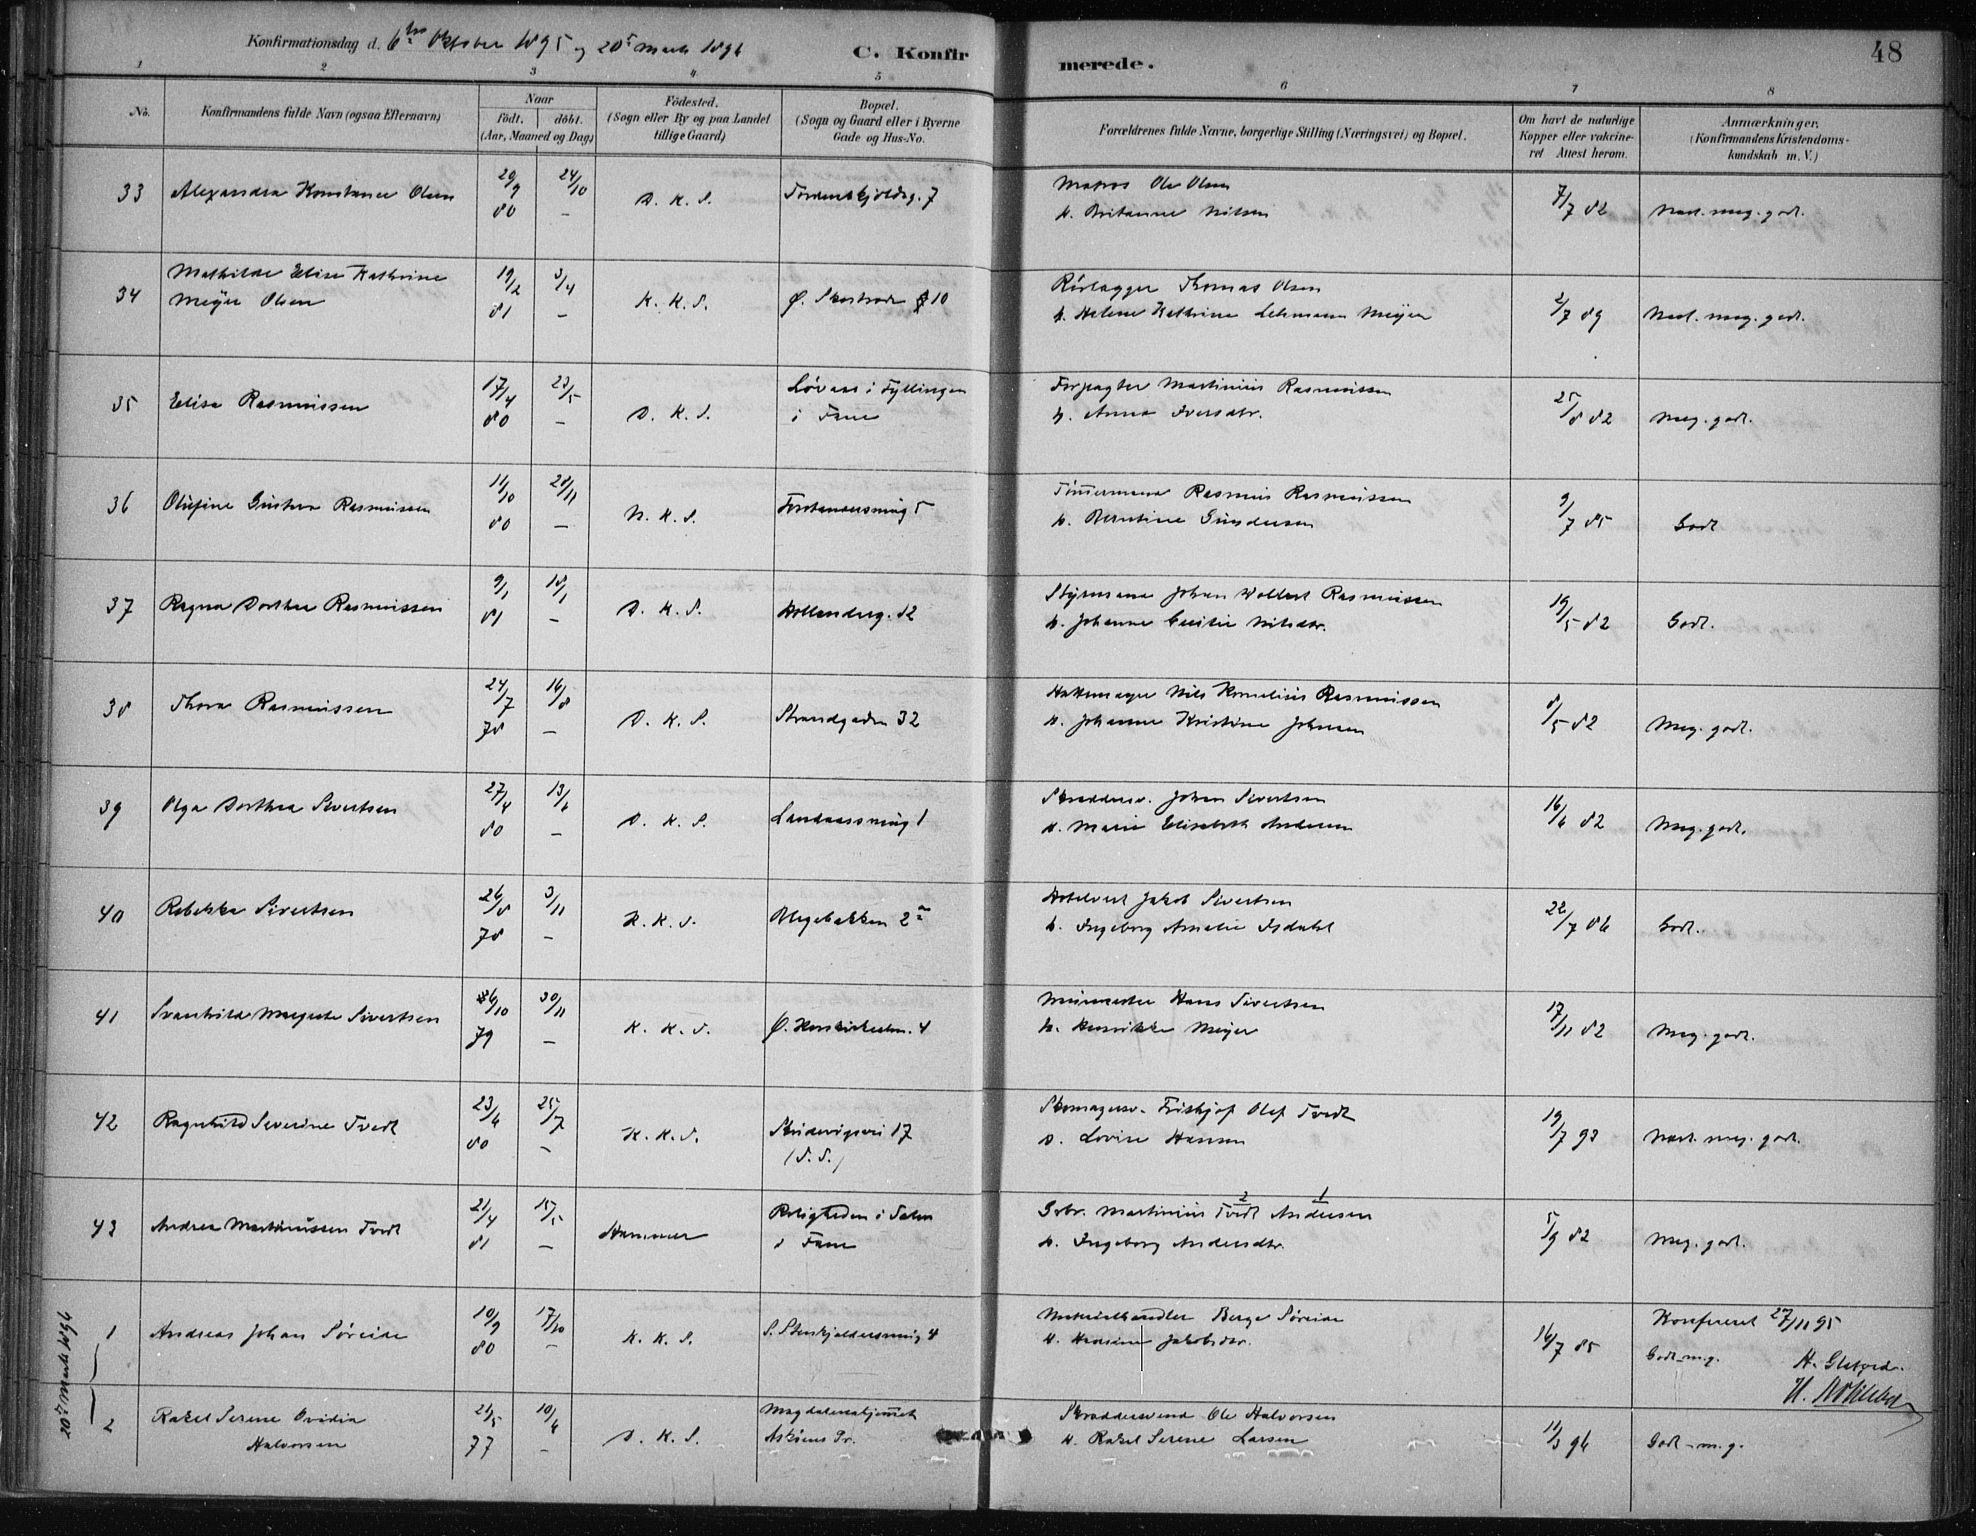 Konfirmationsdag d. 6te Oktober 1895 og 20de Marts 1896
C. Konfirmerede.
48
1 2 3 4 5 6 7 8
No.
Konfirmandens fulde Navn (ogsaa Efternavn)
Naar
födt. döbt.
(Aar, Maaned og Dag)
Födested.
(Sogn eller By og paa Landet
tillige Gaard)
Bopæl.
(Sogn og Gaard eller i Byerne
Gade og Hus-No.
Forældrenes fulde Navne, borgerlige Stilling (Næringsvei) og Bopæl.
Om havt de naturlige
Kopper eller vakcine-
ret Attest herom.
Anmærkninger.
(Konfirmandens Kristendoms-
kundskab m. V.)
33 Alexandra Konstance Olsen 20/9 80 24/10 – D. K. S. Tordenskjoldsg. 7
Matros Ole Olsen
h. Britanne Nilsen
7/7 82 Næst. meg. godt.
34 Mathilde Elise Kathrine
Meyer Olsen 19/2 81 3/4 – K. K. S. Ø. Skostræde 10
Rörlægger Thomas Olsen
h. Helene Kathrine Lehmann Meyer
2/7 89 Næst. meg. godt.
35 Elise Rasmussen 17/4 80 23/5 – D. K. S. Løvaas i Fyllingen
i Fane
Forpagter Martinius Rasmussen
h. Anna Iversdtr.
25/8 82 Meg. godt.
36 Olufine Gustava Rasmussen 11/10 80 28/11 – N. K. S. 5
Tömmermand Rasmus Rasmussen
h. Berntine Gundersen
9/7 85 Godt
37 Ragna Dorthea Rasmussen 9/1 81 18/1 – D. K. S. Hollenderg. 12
Styrmand Johan Wollert Rasmussen
h. Johanne Cecilie Nilsdtr.
19/5 82 Godt.
38 Thora Rasmussen 24/7 78 16/8 – D. K. S. Strandgaden 32
Hattemager Nils Kornelius Rasmussen
h. Johanne Kristine Johnsen
8/5 82 Meg. godt.
39 Olga Dorthea Sivertsen 27/4 80 13/6 – D. K. S. Landaassmug 1
Skræddersv. Johan Sivertsen
h. Marie Elisabeth Andersen
16/6 82 Meg. godt.
40 Rebekka Sivertsen 26/8 78 3/11 – K. K. S. Uregebakken 2a
Hotelvert Jakob Sivertsen
h. Ingeborg Amalie Isdahl
22/7 86 Godt.
41 Svanhild Margrete Sivertsen 26/10 79 30/11 – K. K. S. Ø. Korskirkealm. 4
Murmester Hans Sivertsen
h. Henrikke Meyer
17/11 82 Meg. godt.
42 Ragnhild Severine Tvedt 23/6 80 25/7 – K. K. S. Skudevigsvei 17
(S. S.)
Skomagersv. Frithjof Olaf Tvedt
h. Lovise Hansen
19/7 93 Næst. meg. godt.
43 Andrea Martinussen Tvedt 21/4 81 15/5 – Hammer Roligheden i Salen
i Fane
2 1
Grbr. Martinius Tvedt Andersen
h. Ingeborg Andersdtr.
5/9 82 Meg. godt.
20de Marts 1896
1 Andreas Johan Søreide 10/9 80 17/10 – K. K. S. S. Stenkjeldersmug 4
Materielhandler Berge Søreide
h. Hansine Jakobsdtr.
16/7 85 Konfereret 27/11 95
Godt – m. g.
2 Rakel Serene Ovidia
Halvorsen 21/5 77 10/6 – D. K. S. Magdalenahjemmet
Askøens Pr.
Skræddersvend Ole Halvorsen
h. Rakel Serene Larsen
11/3 96 Godt – m. g.